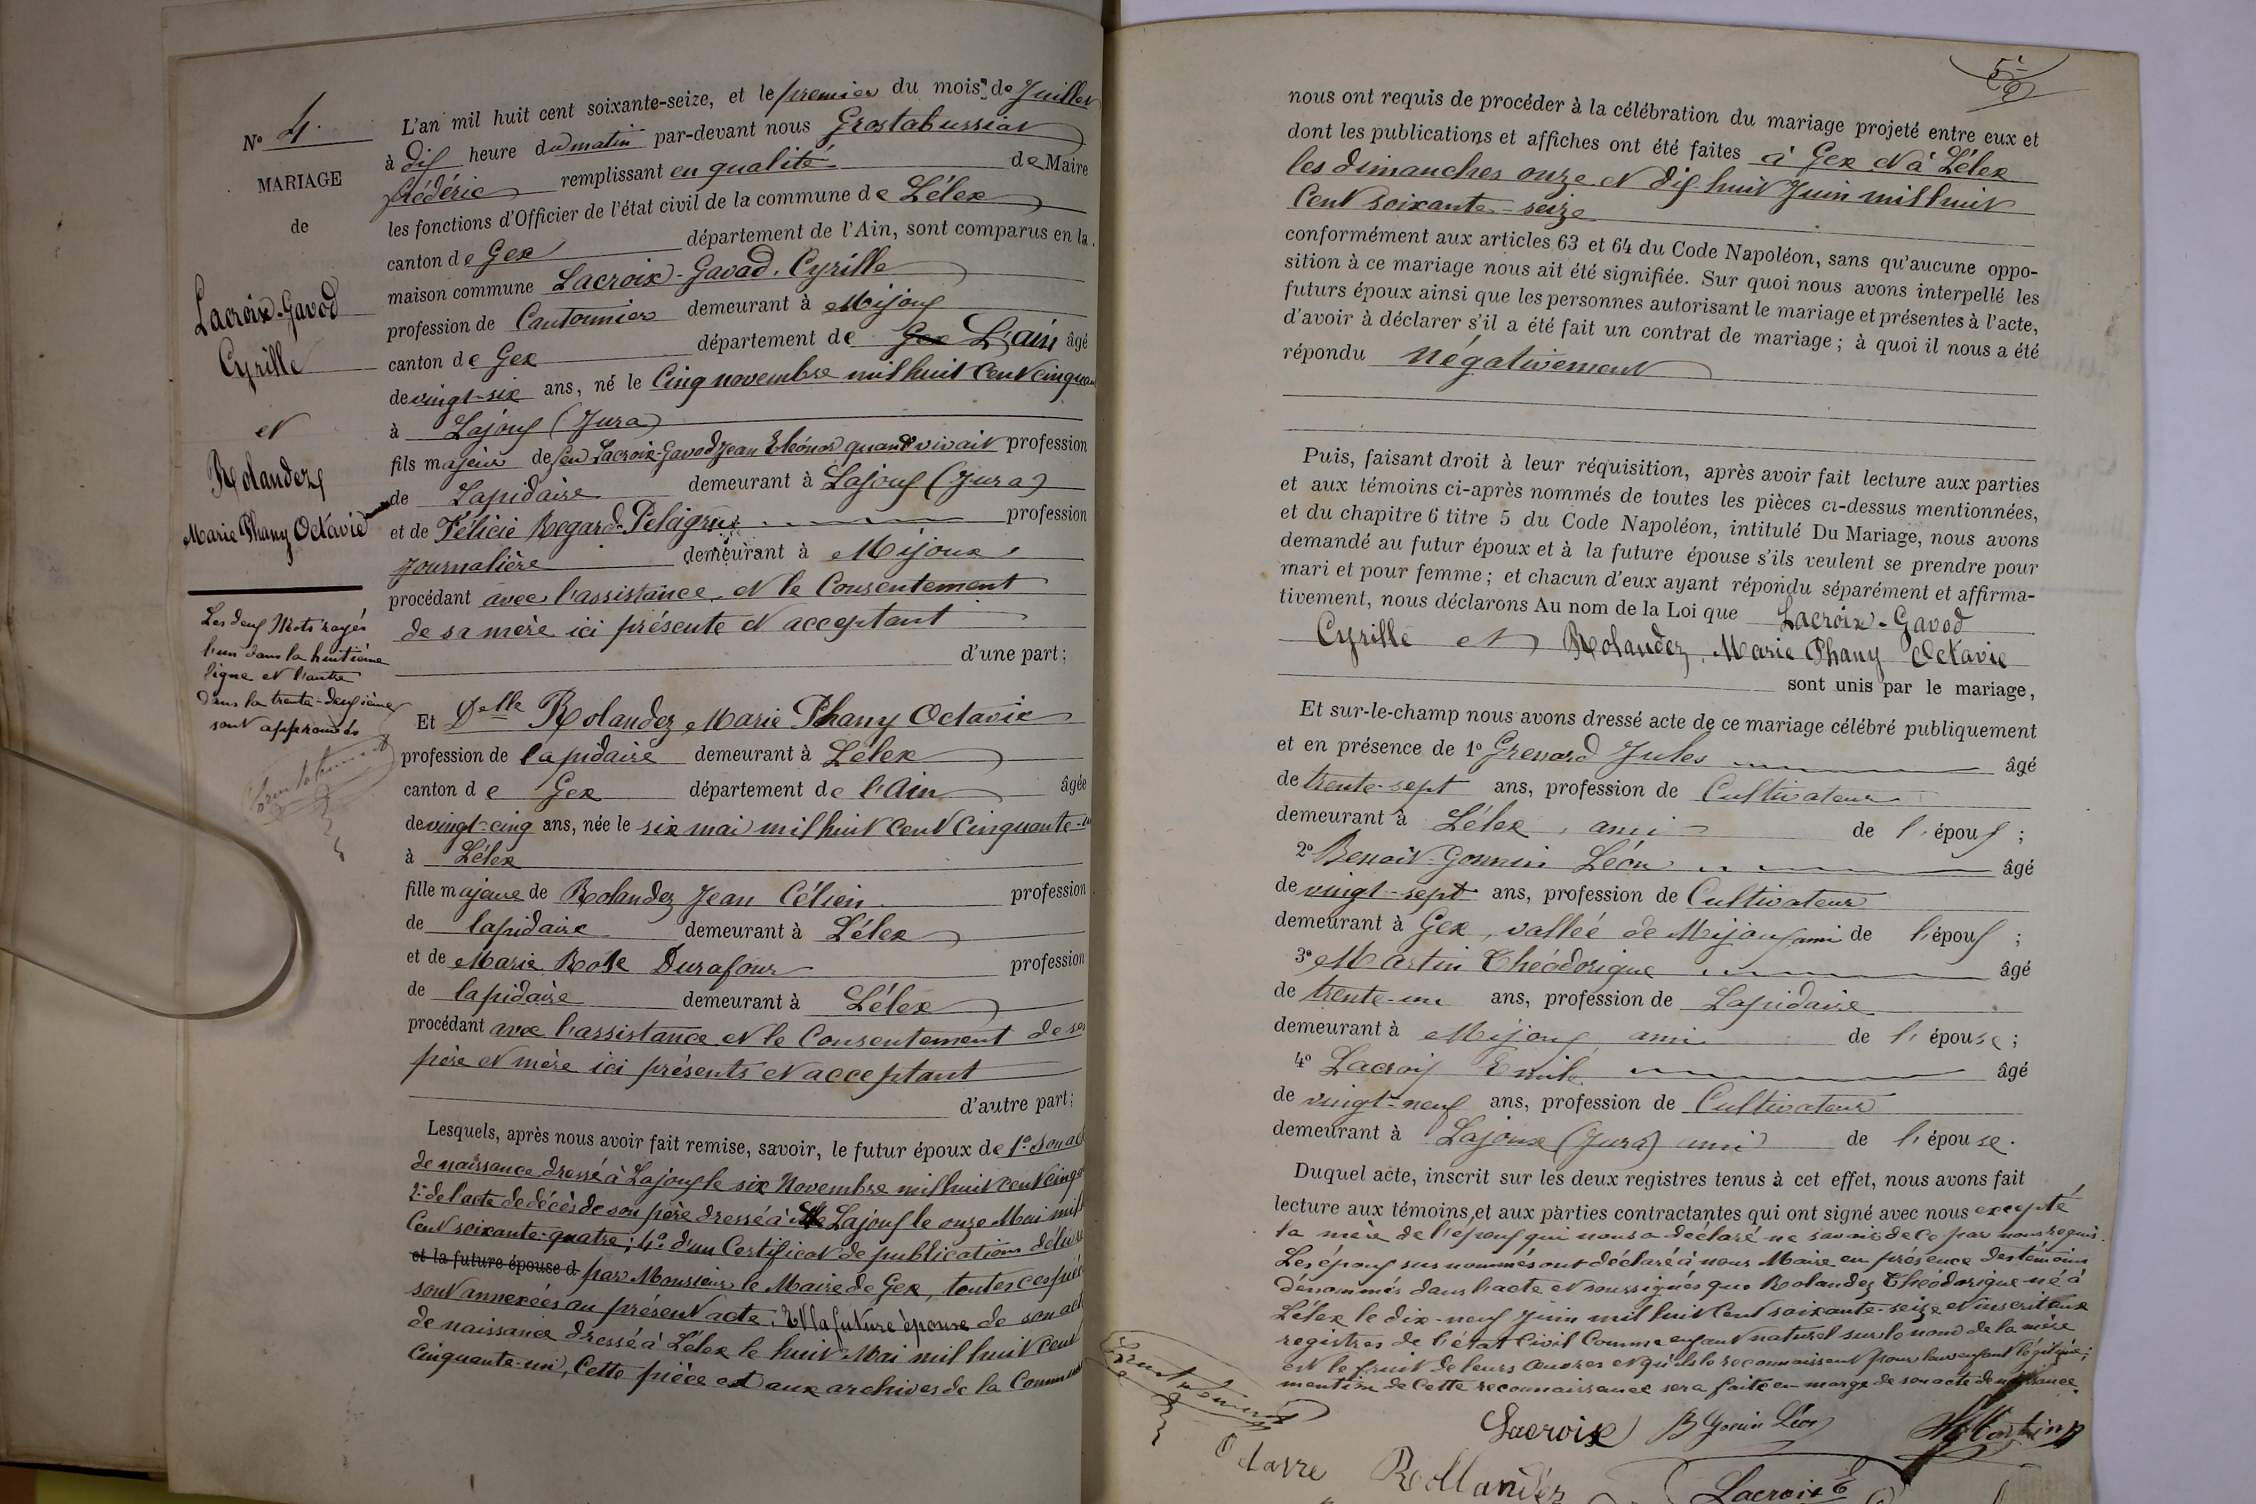 N° 4
MARIAGE
de
Lacroix-Gavod
Cyrille
et
Rolandez
Marie Phany Octavie
Les deux Mots rayés
l'un dans la huitième
ligne et l'autre
dans la trente-deuxième
sont approuvés
L'an mil huit cent soixante-seize, et le premier du mois de Juillet
à dix heure du matin par-devant nous Grostabussiat
frédéric remplissant en qualité de Maire
les fonctions d'Officier de l'état civil de la commune de Lélex
canton de Gex département de l'Ain, sont comparus en la
maison commune Lacroix-Gavod, Cyrille
profession de Cantonnier demeurant à Mijoux
canton de Gex département de Gex L'ain âgé
de vingt-six ans, né le Cinq novembre mil huit Cent cinquan
à Lajoux (Jura)
fils majeur de feu Lacroix-Gavod Jean Eléonor quand vivait profession
de Lapidaire demeurant à Lajoux (Jura)
et de Félicie Regard-Pelagrue profession
journalière demeurant à Mijoux
procédant avec l'assistance et le Consentement
de sa mère ici présente et acceptant
d'une part;
Et Delle Rolandez Marie Phany Octavie
profession de lapidaire demeurant à Lélex
canton de Gex département de l'Ain âgée
de vingt-cinq ans, née le six mai mil huit cent Cinquante-un
à Lélex
fille majeure de Rolandez Jean Célien profession
de lapidaire demeurant à Lélex
et de Marie Rose Durafour profession
de lapidaire demeurant à Lélex
procédant avec l'assistance et le Consentement de ses
père et mère ici présents et acceptant
d'autre part;
Lesquels, après nous avoir fait remise, savoir, le futur époux de 1° Son acte
de naissance dressé à Lajoux le six Novembre mil huit cent Cinq
2° de l'acte de décès de son père dressé à Lajoux le onze Mai mil
Cent soixante-quatre; 4° d'un Certificat de publications délivré
et la future épouse d par Monsieur le Maire de Gex, toutes ces pièc
sont annexées au présent acte; Et la future épouse de son act
de naissance dressé à Lélex le huit Mai mil huit cent
Cinquante-un, Cette pièce est aux archives de la Commune
5
nous ont requis de procéder à la célébration du mariage projeté entre eux et
dont les publications et affiches ont été faites à Gex et à Lélex
les dimanches onze et dix-huit Juin mil huit
Cent soixante-seize
conformément aux articles 63 et 64 du Code Napoléon, sans qu'aucune oppo-
sition à ce mariage nous ait été signifiée. Sur quoi nous avons interpellé les
futurs époux ainsi que les personnes autorisant le mariage et présentes à l'acte,
d'avoir à déclarer s'il a été fait un contrat de mariage; à quoi il nous a été
répondu négativement
Puis, faisant droit à leur réquisition, après avoir fait lecture aux parties
et aux témoins ci-après nommés de toutes les pièces ci-dessus mentionnées,
et du chapitre 6 titre 5 du Code Napoléon, intitulé Du Mariage, nous avons
demandé au futur époux et à la future épouse s'ils veulent se prendre pour
mari et pour femme; et chacun d'eux ayant répondu séparément et affirma-
tivement, nous déclarons Au nom de la Loi que Lacroix-Gavod
Cyrille et Rolandez, Marie Phany Octavie
sont unis par le mariage,
Et sur-le-champ nous avons dressé acte de ce mariage célébré publiquement
et en présence de 1° Grenard Jules âgé
de trente-sept ans, profession de Cultivateur
demeurant à Lélex, ami de l'époux;
2° Benoit-Gonnin Léon âgé
de vingt-sept ans, profession de Cultivateur
demeurant à Gex, vallée de Mijoux ami de l'époux;
3° Martin Théodorique âgé
de trente-un ans, profession de Lapidaire
demeurant à Mijoux ami de l'épouse;
4° Lacroix Emile âgé
de vingt-neuf ans, profession de Cultivateur
demeurant à Lajoux (Jura) ami de l'épouse.
Duquel acte, inscrit sur les deux registres tenus à cet effet, nous avons fait
lecture aux témoins, et aux parties contractantes qui ont signé avec nous excepté
la mère de l'époux qui nous a déclaré ne savoir de ce par nous requis.
Les époux sus nommés ont déclaré à nous Maire en présence des témoins
dénommés dans l'acte et soussignés que Rolandez Théodorique né à
Lélex le dix-neuf Juin mil huit Cent soixante-seize et inscrit aux
registres de l'état Civil Comme enfant naturel sur le nom de la mère
est le fruit de leurs œuvres et qu'ils le reconnaissent pour leur enfant légitime;
mention de cette reconnaissance sera faite en marge de son acte de naissance.
Lacroix B Gonin Léon Martin
Octavie Rollandez Lacroix E